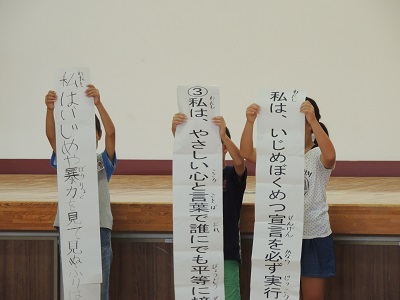 私は、いじめぼくめつ宣言を必ず実行
③私は、やさしい心と言葉で誰にでも平等に接
私はいじめや暴力を見て見ぬふりは